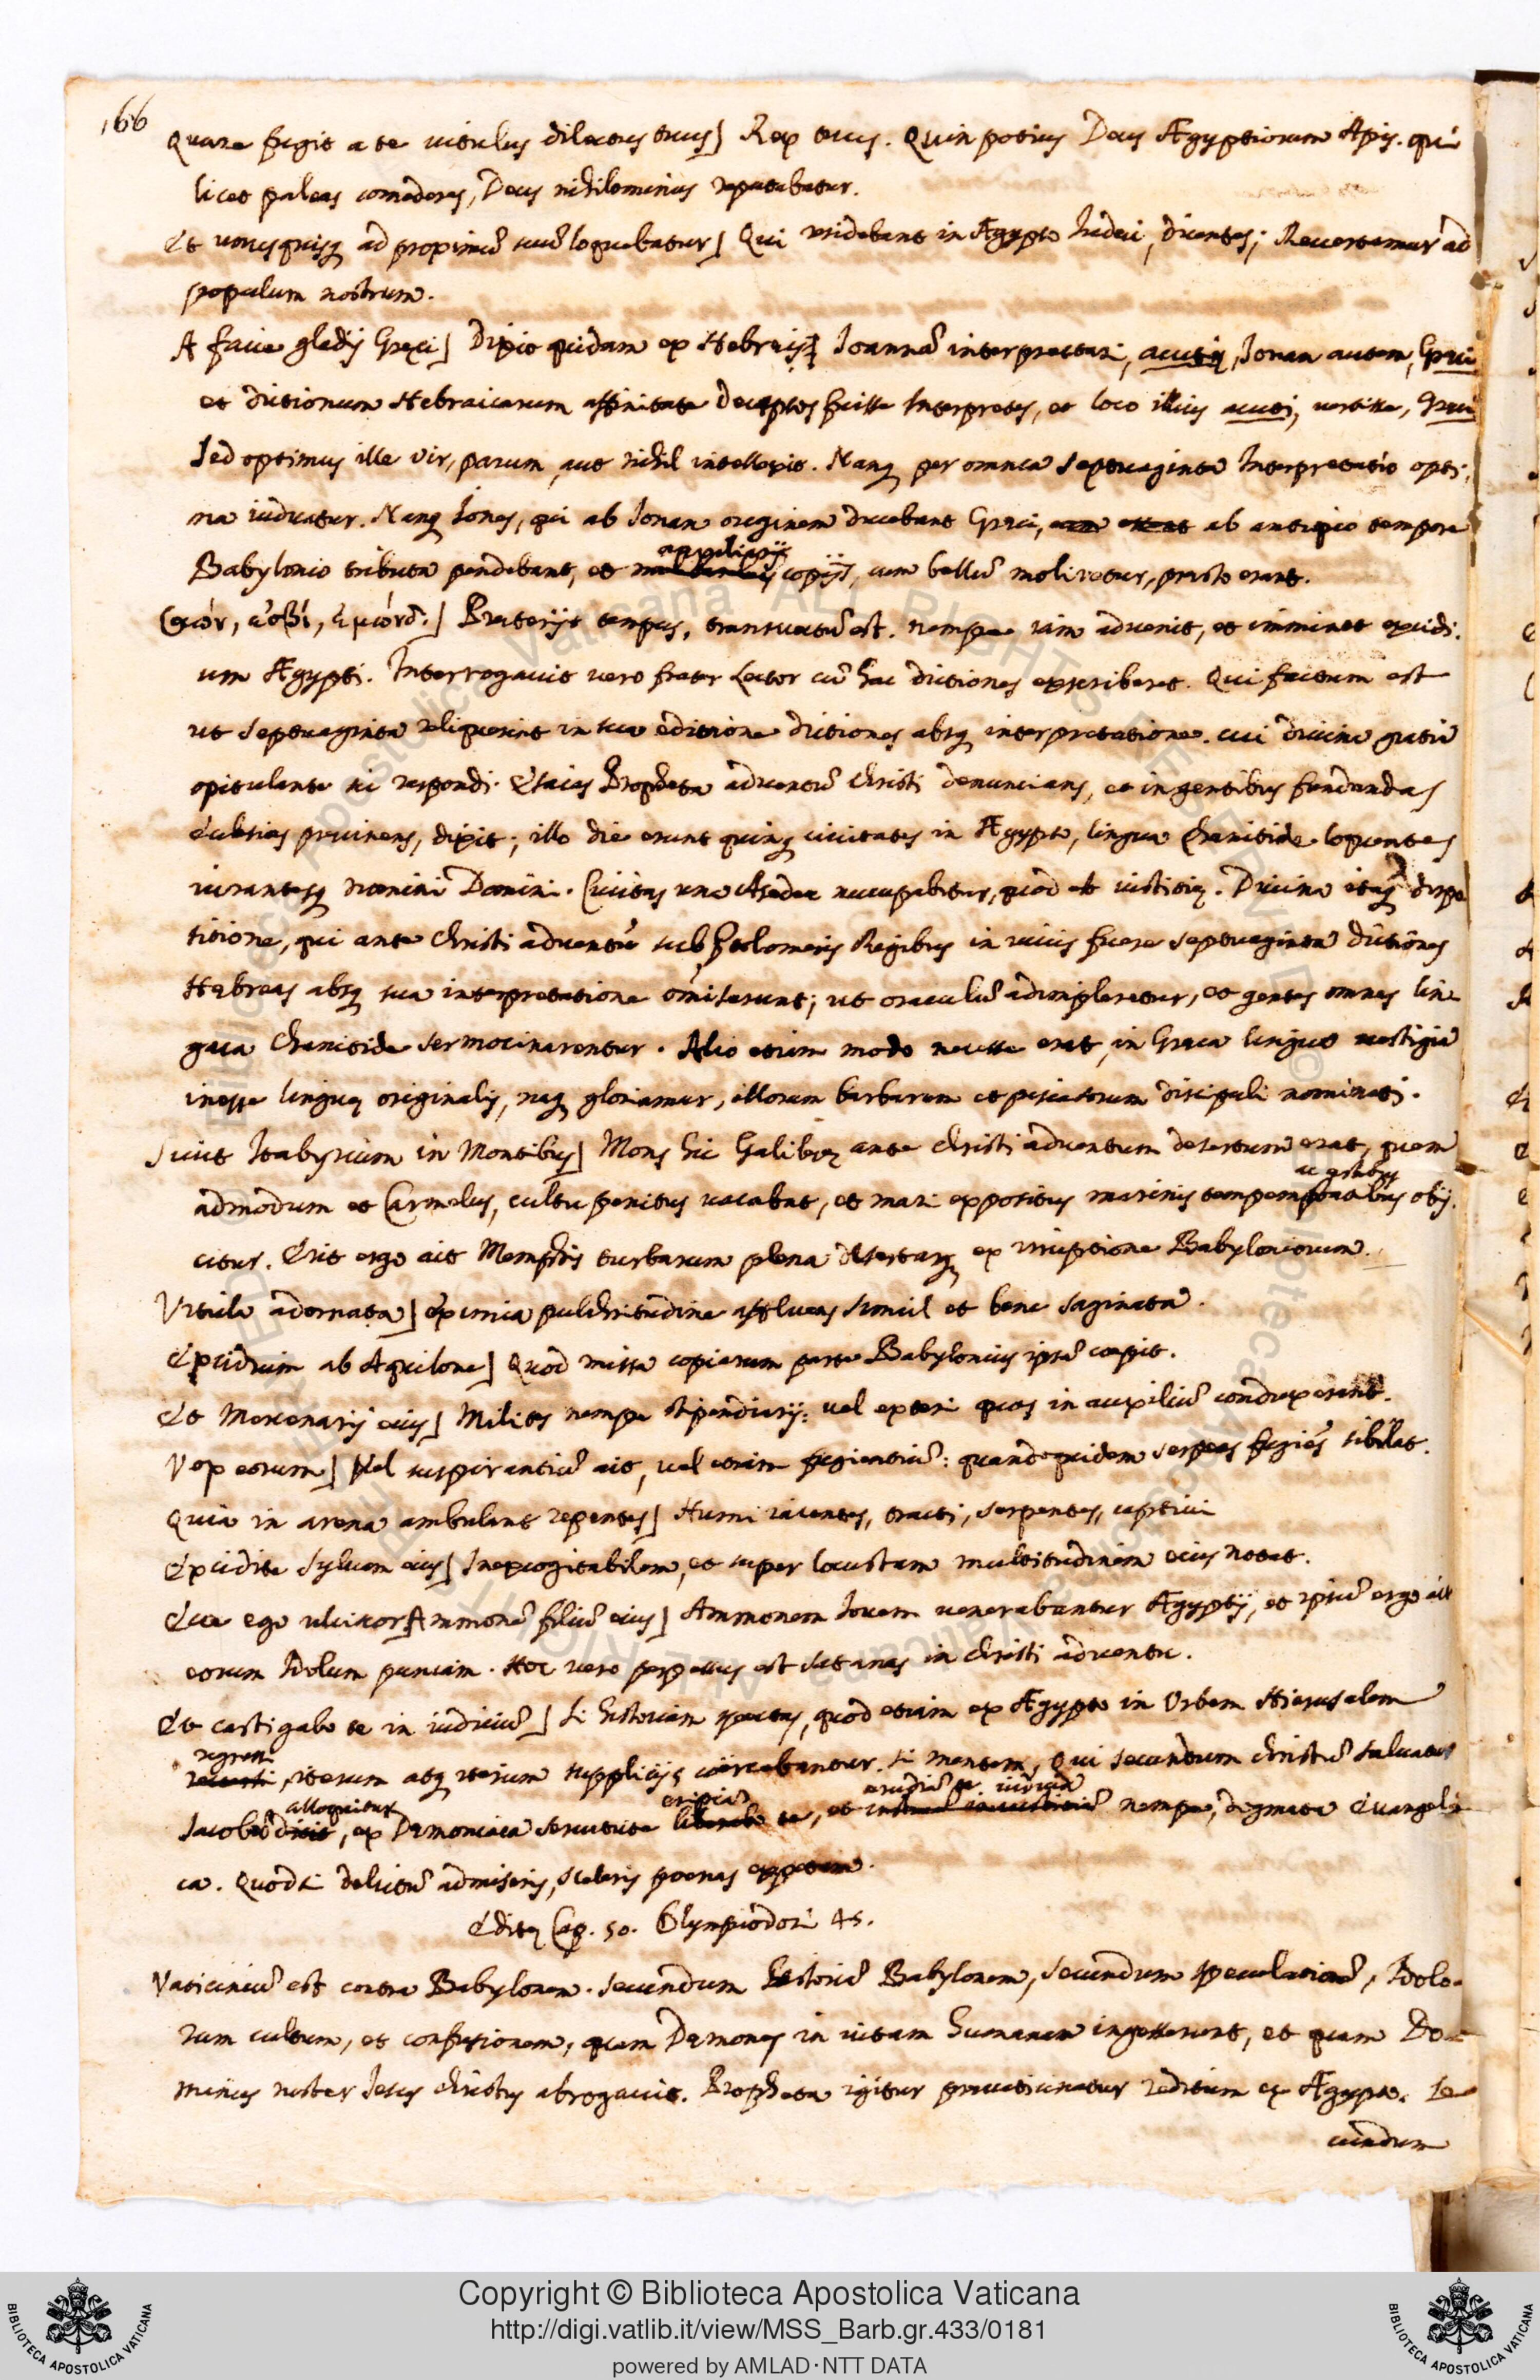 166
Quare fugit a te uitulus dilectus tuus] Rex tuus. Quin potius Deus Ægyptiorum Apis. qui
licet paleas comederet, Deus nihilominus reputabatur.
Et unusquisq ad proximũ suũ loquebatur] Qui residebant in Ægypto Iudæi, dicentes; Reuertamur ad
populum nostrum.
A facie gladij Græci] Dixit quidam ex Hebreis Ioannã interpretari, acutę, Ionan autem, Græci
et dictionum Hebraicarum affinitate deceptos fuisse Interpretes, et loco illius acuti, uertisse, Græci
Sed optimus ille vir, parum, aut nihil intellexit. Nanq per omnia Septuaginta Interpretatio opti,
ma iudicatur. Nanq Iones, qui ab Ionan originem ducebant Græci, ab antiquo tempore
Babylonio tributa pendebant, et auxiliarijs copijs, cum bellũ moliretur, præsto erant.
Præterijt tempus, transuectũ est. nempe iam aduenit, et imminet excidi.
um Ægypti. Interrogauit uero frater Lector cũ has dictiones exscriberet. Qui factum est
ut Septuaginta reliquerint in sua editione dictiones absq interpretatione. cui diuina gratia
opitulante sic respondi. Esaias Propheta aduentũ Christi denuncians, et in gentibus fundandas
Ecclesias præuinens, dixit; illo die erunt quinq ciuitates in Ægypto, lingua Chanitide loquentes
iurantesq nomini Domini. Ciuitas una Asedec nuncupabitur, quod est iustitię. Diuina itaq dispo
sitione, qui ante Christi aduentũ sub Ptolomeis Regibus in uiuis fuere Septuaginta dictiones
Hebreas absq sua interpretatione omiserunt; ut oraculũ adimpleretur, et gentes omnes lin
gua Chanitide sermocinarentur. Alio etiim modo necesse erat, in Græca lingua uestigia
inesse linguę originalis, neq gloriamur, illorum barbarum et piscatorum discipuli nominati.
Sicut Itabyrium in Montibus] Mons hic Galileę ante Christi aduentum desertum erat, quem
ac æstibus
admodum et Carmelus, cultu penitus uacabat, et mari expositus marinis obij.
citur. Erit ergo ait Memphis turbarum plena desertaq ex irruptione Babyloniorum.
Vitula adornata] eximia pulchritudine affluens simul et bene saginata.
Excidium ab Aquilone] Quod missa copiarum parte Babylonius ipsã coepit.
Et Mercenarij eius] Milites nempe stipendiarij: uel exteri quos in auxiliũ conduxerant.
Vox eorum] Vel suspirantiũ ait, uel etiam fugientiũ: quandoquidem serpens fugiẽs sibilat.
Quia in arena ambulant repentes] Humi iacentes, tracti, serpentes, captiui
Excidite Syluam eius] Inexcogitabilem, et super locustam multitudinem eius notat.
Ecce ego ulciscor Ammonẽ filiũ eius] Ammonem Iouem uenerabantur Ægyptij, et ipsũ ergo ait
eorum Idolum puniam. Hoc uero perpessus est Satanas in Christi aduentu.
Et castigabo te in iudiciũ] Si historiam spectas, quod etiam ex Ægypto in Vrbem Hierusalem
regressi
iterum atq iterum supplicijs coërcebantur. si mentem, Qui secundum Christũ saluatus
alloquitur eripiã erudiã te iudiciũ
Iacob, ex Dæmoniaca seruitute te, et nempe, dogmata Euangeli
ca. Quodsi delictũ admiseris, sceleris poenas expetam.
Editę Cap. 50. Olympiodori 45.
Vaticiniũ est contra Babylonem. secundum historiã Babylonem, secundum speculationẽ, Idolo-
rum cultum, et confusionem, quam Dæmones in uitam humanam ingesserunt, et quam Do-
minus noster Iesus Christus abrogauit. Propheta igitur præuaticinatur reditum ex Ægypto. Se
cundum
Copyright © Biblioteca Apostolica Vaticana
http://digi.vatlib.it/view/MSS_Barb.gr.433/0181
powered by AMLAD·NTT DATA
BIBLIOTECA APOSTOLICA VATICANA
BIBLIOTECA APOSTOLICA VATICANA